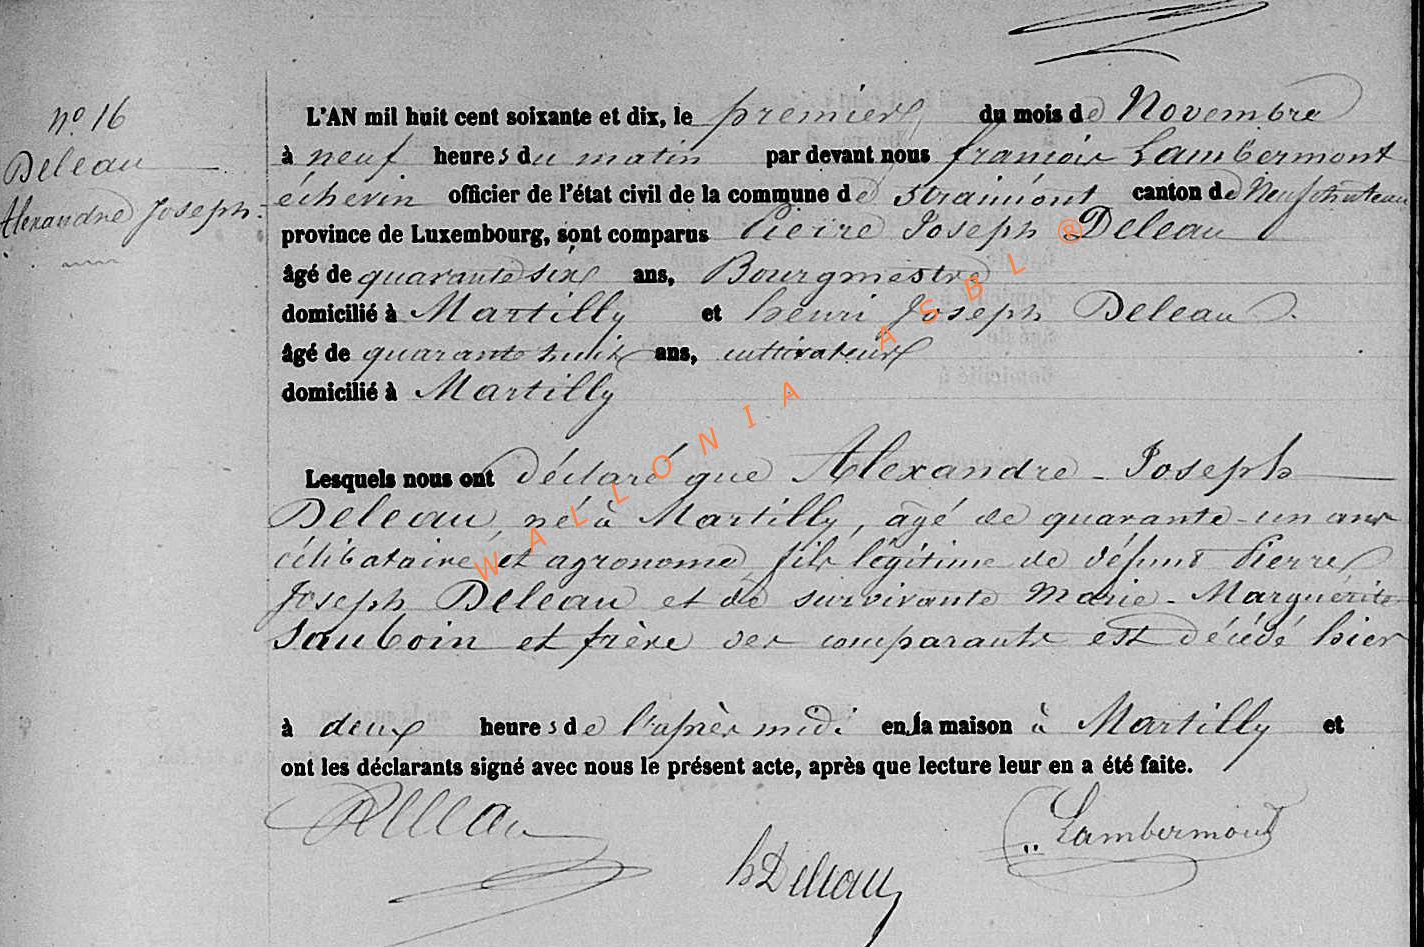 nº 16
Deleau
Alexandre Joseph.
L'AN mil huit cent soixante et dix, le premier du mois de Novembre
à neuf heures du matin par devant nous françois Lambermont
échevin officier de l'état civil de la commune de Straimont canton de Neufchateau
province de Luxembourg, sont comparus Pierre Joseph Deleau
âgé de quarante six ans, Bourgmestre
domicilié à Martilly et henri Joseph Deleau
âgé de quarante huit ans, cultivateur
domicilié à Martilly
Lesquels nous ont déclaré que Alexandre - Joseph
Deleau, né à Martilly, âgé de quarante-un ans
célibataire et agronome, fils légitime de défunt Pierre
Joseph Deleau et de survivante Marie - Marguérite
Jauboin et frère des comparants est décédé hier
à deux heures de l'après midi en la maison à Martilly et
ont les déclarants signé avec nous le présent acte, après que lecture leur en a été faite.
Deleau
h Deleau
Lambermont
WALLONIA ASBL ®